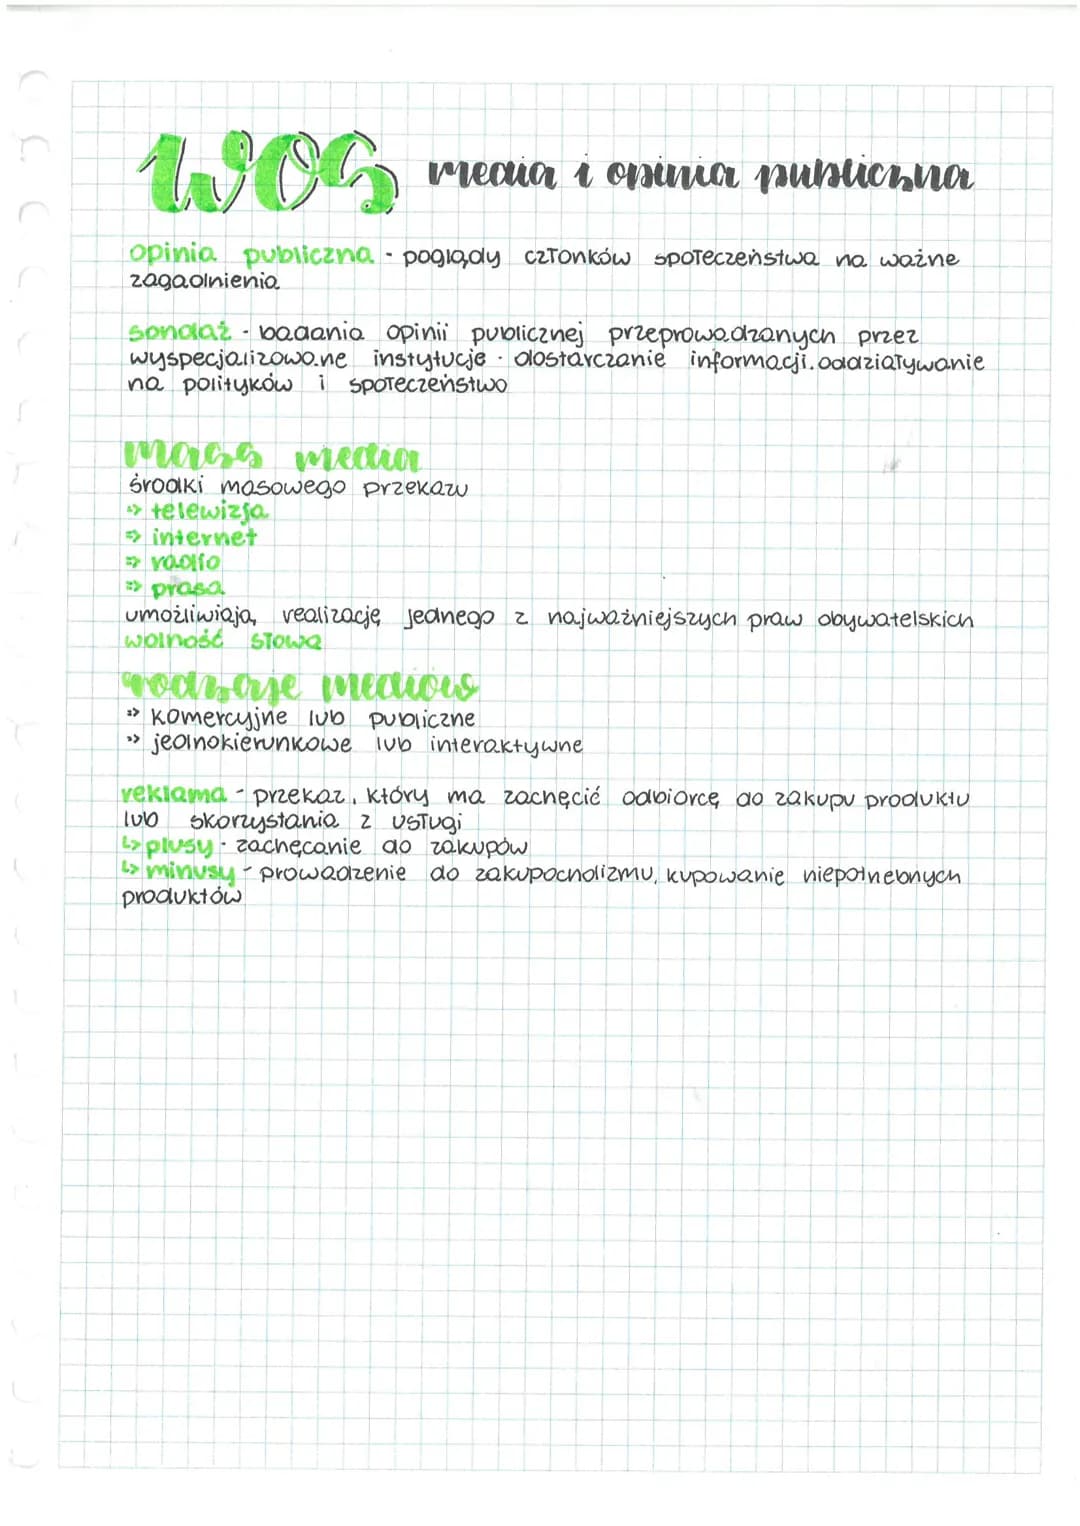 WOS media i opinia publiczna
opinia publiczna - poglądy członków społeczeństwa na ważne
zagadnienia
sondaż - badania opinii publicznej przeprowadzanych przez
wyspecjalizowane instytucje · dostarczanie informacji. oddziaływanie
na polityków i społeczeństwo
mass media
środki masowego przekazu
=> telewizja
=> internet
=> radio
=> prasa
umożliwiają realizację jednego z najważniejszych praw obywatelskich
wolność słowa
rodzaje mediów
=> komercyjne lub publiczne
=> jednokierunkowe lub interaktywne
reklama - przekaz, który ma zachęcić odbiorcę do zakupu produktu
lub skorzystania z usługi
↳ plusy - zachęcanie do zakupów
↳ minusy - prowadzenie do zakupocholizmu, kupowanie niepotnebnych
produktów